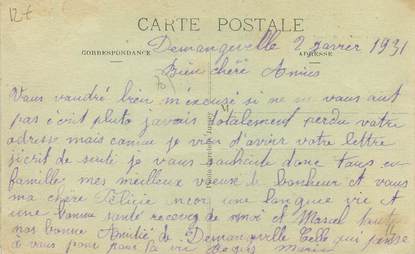 12€
CARTE POSTALE
CORRESPONDANCE
ADRESSE
Demangevelle 2 janvier 1931
Bien chère Amies
Vous vaudré bien m'éxcusé si ne vous aut
pas écrit pluto javais totalement perdu votre
adresse mais comme je vien d'avoir votre lettre
jécrit de suite je vous souhaite donc tous en
famille mes meilleux voeux de bonheur et vous
ma chère une langue vie et
une bonne santé recevez de moi et Marcel tout
nos bonne Amitié de Demangeville Celle qui pense
à vous pour la vie Marie